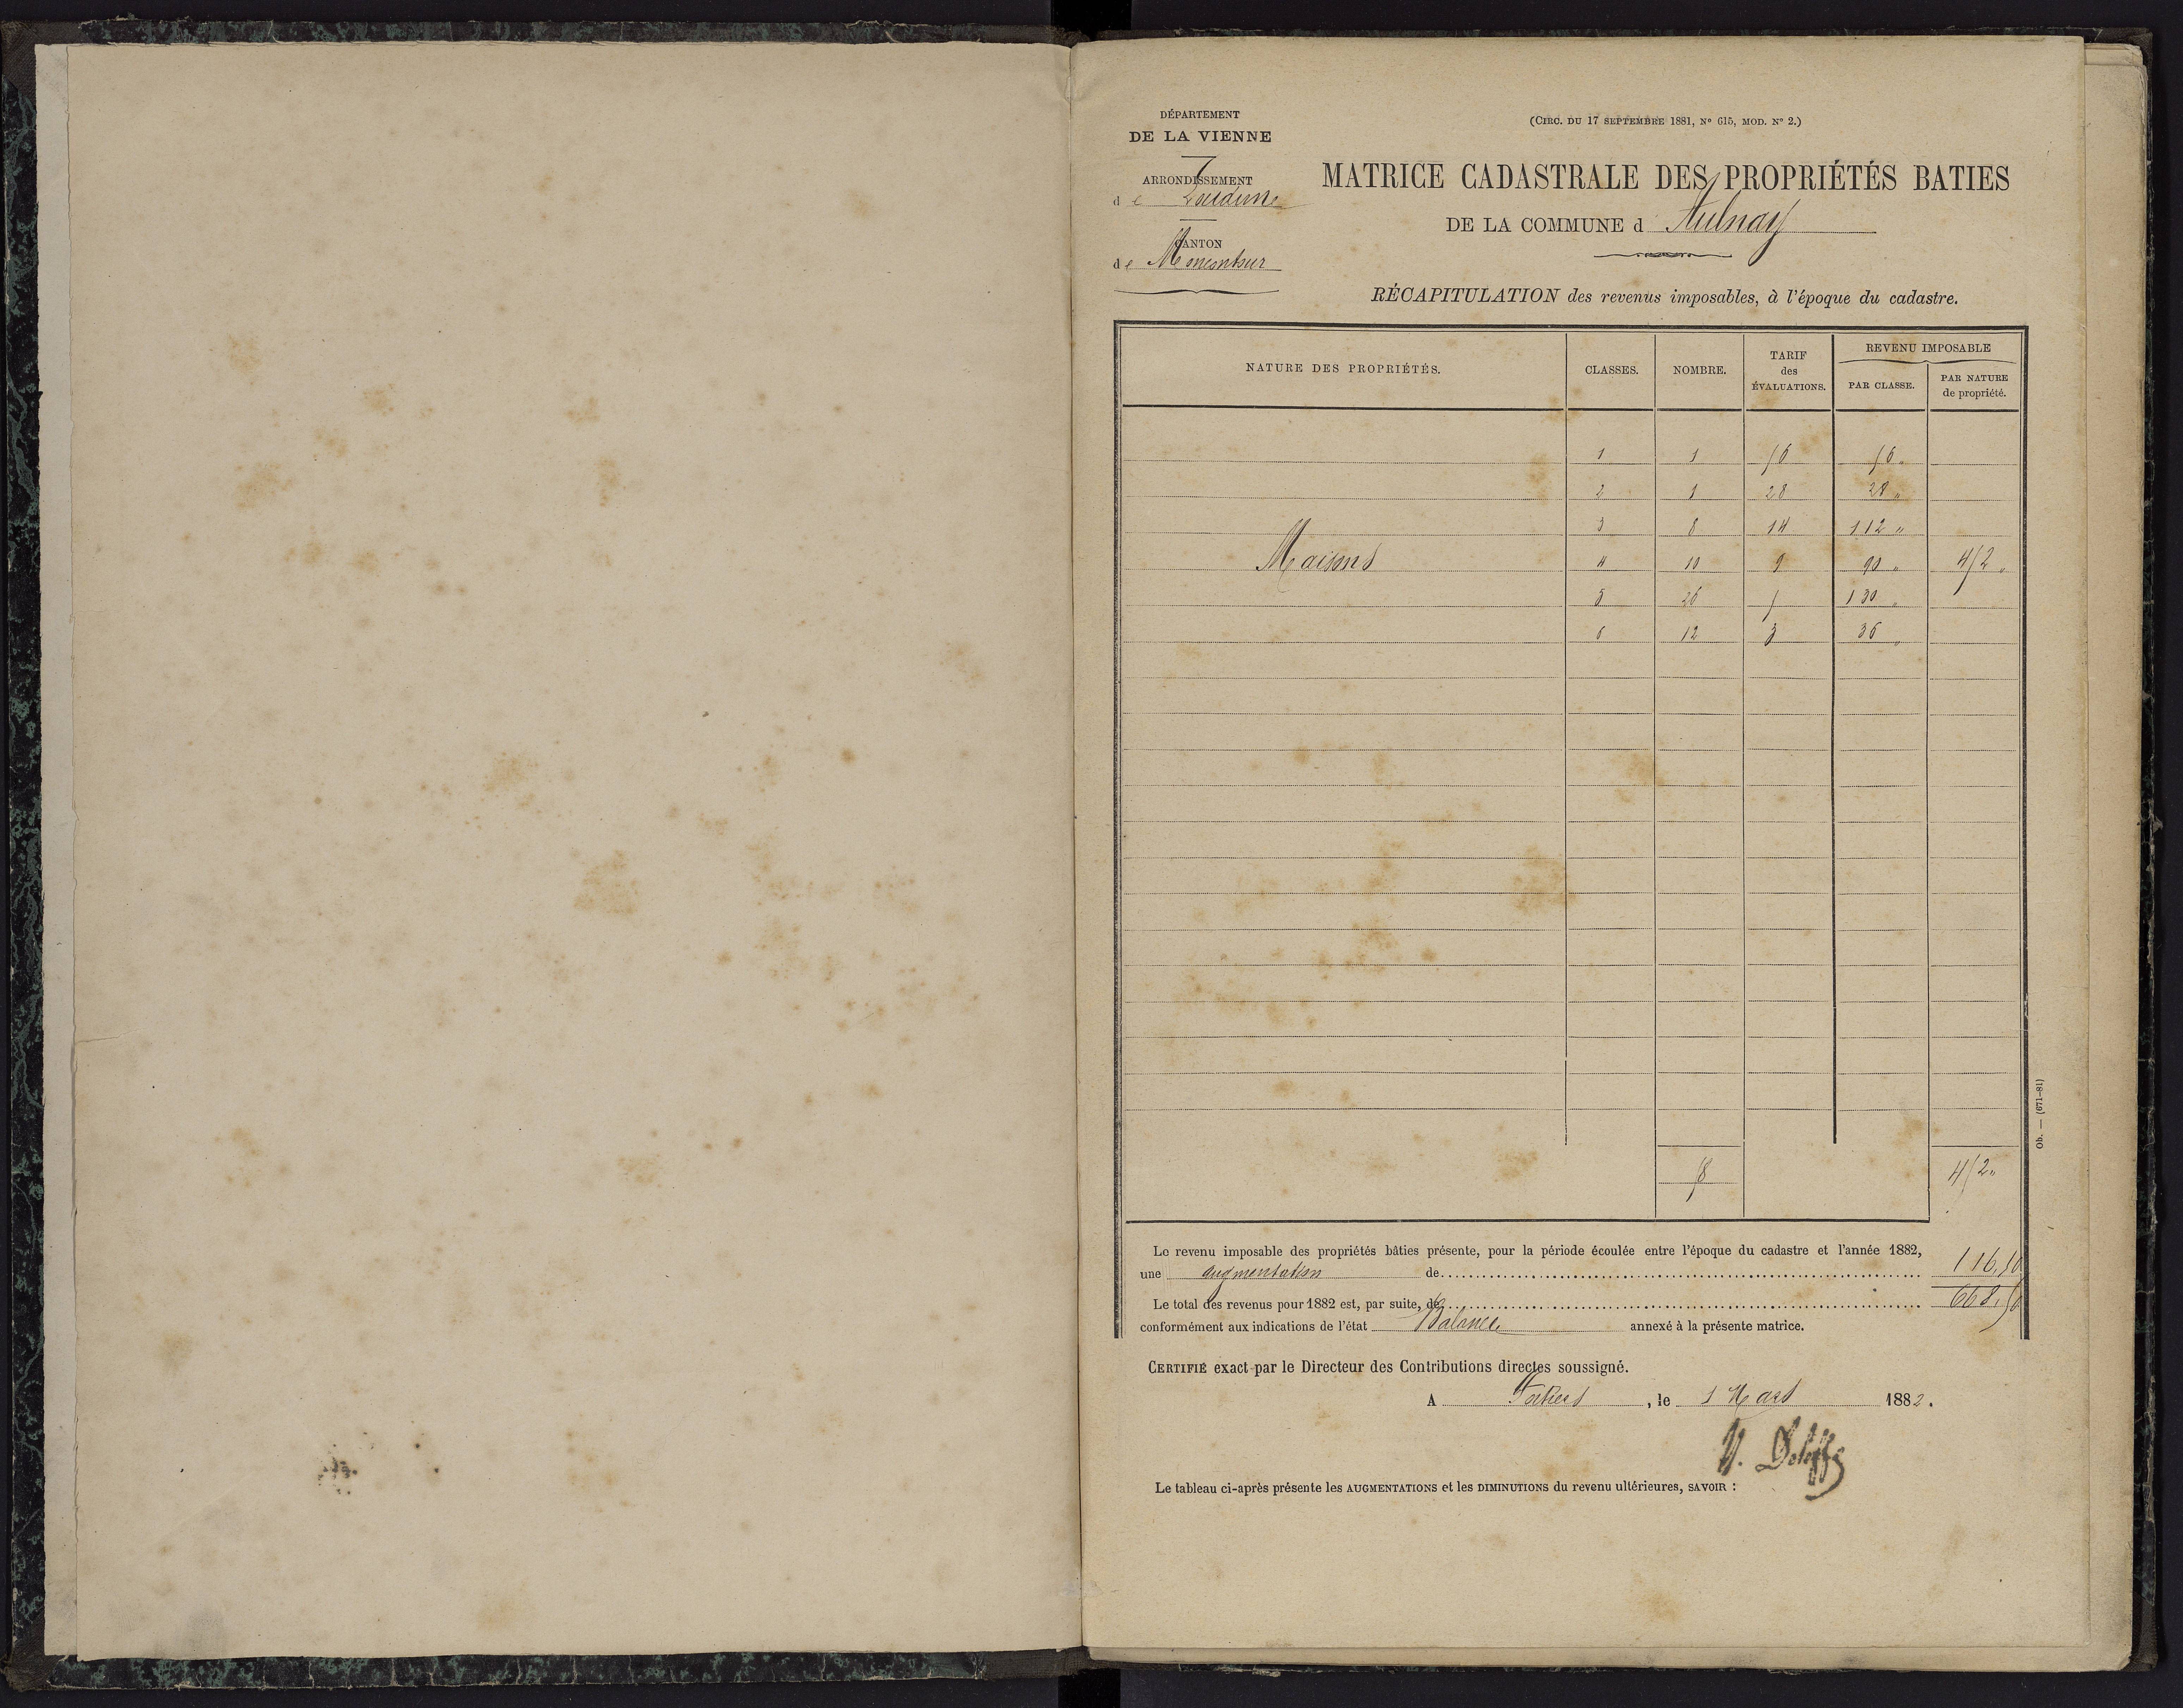 DÉPARTEMENT
DE LA VIENNE
ARRONDISSEMENT
de Loudun
CANTON
de Moncontour
(CIRC. DU 17 SEPTEMBRE 1881, N° 615, MOD. N° 2.)
MATRICE CADASTRALE DES PROPRIÉTÉS BATIES
DE LA COMMUNE d Aulnay
RÉCAPITULATION des revenus imposables, à l'époque du cadastre.
NATURE DES PROPRIÉTÉS. CLASSES. NOMBRE. TARIF des ÉVALUATIONS. REVENU IMPOSABLE PAR CLASSE. PAR NATURE de propriété.
1 1 56 56 "
2 1 28 28 "
3 8 14 112 "
Maisons 4 10 9 90 " 452 "
5 26 5 130 "
6 12 3 36 "
58 452 "
Le revenu imposable des propriétés bâties présente, pour la période écoulée entre l'époque du cadastre et l'année 1882,
une augmentation de 116,50
Le total des revenus pour 1882 est, par suite, de 668,50
conformément aux indications de l'état Balance annexé à la présente matrice.
CERTIFIÉ exact par le Directeur des Contributions directes soussigné.
A Poitiers, le 1 Mars 1882.
Le tableau ci-après présente les AUGMENTATIONS et les DIMINUTIONS du revenu ultérieures, SAVOIR :
Ob. — (671-81)